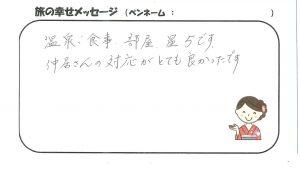 旅の幸せメッセージ（ペンネーム：　　　　　　）
温泉:食事 部屋 星5です
仲居さんの対応がとても良かったです